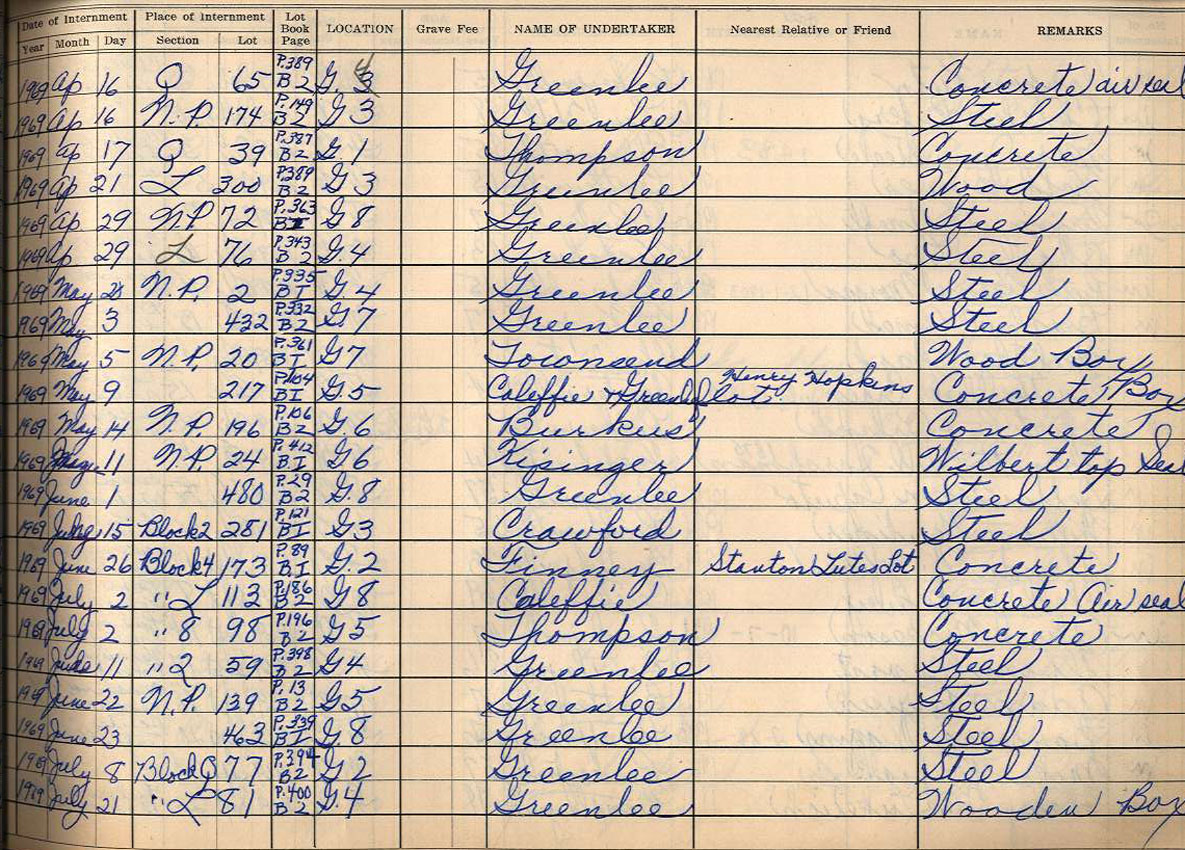 Date of Internment Place of Internment Lot Book Page LOCATION Grave Fee NAME OF UNDERTAKER Nearest Relative or Friend REMARKS
Year Month Day Section Lot
1969 Ap 16 Q 65 P.389 B 2 G. Greenlee Concrete air seal
1969 Ap 16 N.P. 174 P.149 B 2 G 3 Greenlee Steel
1969 Ap 17 Q 39 P.387 B 2 G 1 Thompson Concrete
1969 Ap 21 L 300 P.389 B 2 G. 3 Greenlee Wood
1969 Ap 29 N.P. 72 P.363 G 8 Greenlee Steel
1969 Ap 29 L 76 P.343 B 2 G. 4 Greenlee Steel
1969 May N.P. 2 P.335 B I G. 4 Greenlee Steel
1969 May 3 432 P.332 B 2 G. 7 Greenlee Steel
1969 May 5 N.P. 20 P.361 B I G 7 Townsend Wood Box
1969 May 9 217 P.104 B I G. 5 Caleffie & Greenlee Henry Hopkins lot Concrete Box
1969 May 14 N.P. 196 P.106 B 2 G. 6 Burkus Concrete
1969 11 N.P. 24 P.412 B.I G 6 Kisinger Wilbert top Seal
1969 June 1 480 P.29 B 2 G. 8 Greenlee Steel
1969 15 Block 2 281 P.121 B I G 3 Crawford Steel
1969 June 26 Block 4 173 P.89 B I G. 2 Finney Stanton Lutes Lot Concrete
1969 July 2 " L 113 P.186 B 2 G 8 Caleffie Concrete Air seal
1969 July 2 " 8 98 P.196 B 2 G 5 Thompson Concrete
1969 11 " 2 59 P.398 B 2 G 4 Greenlee Steel
1969 June 22 N.P. 139 P.13 B 2 G 5 Greenlee Steel
1969 June 23 463 P.339 B I G. 8 Greenlee Steel
1969 July 8 Block Q 77 P.394 B 2 G 2 Greenlee Steel
1969 July 21 " L 81 P.400 B 2 G. 4 Greenlee Wooden Box